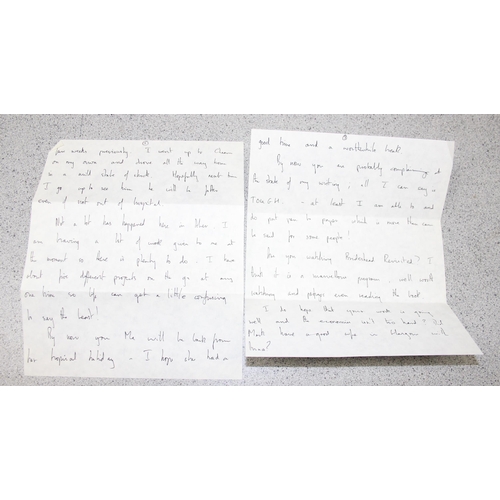 few weeks previously. I went up to
on my own and drove all the way home
in a mild state of shock. Hopefully next time
I go up to see him he will be better
even if not out of hospital.
Not a lot has happened here in I
am having a lot of work given to me at
the moment so there is plenty to do. I have
about five different projects on the go at any
one time so life can get a little confusing
to say the least!
By now your Ma will be back from
her tropical holiday - I hope she had a
good time and a worthwhile break.
By now you are probably complaining at
the state of my writing, all I can say is
TOUGH. - at least I am able to and
do put pen to paper which is more than can
be said for some people!
Are you watching Brideshead Revisited? I
think it is a marvellous program, well worth
watching and perhaps even reading the book.
I do hope that your work is going
well and the isn't too hard? Did
Mark have a good in